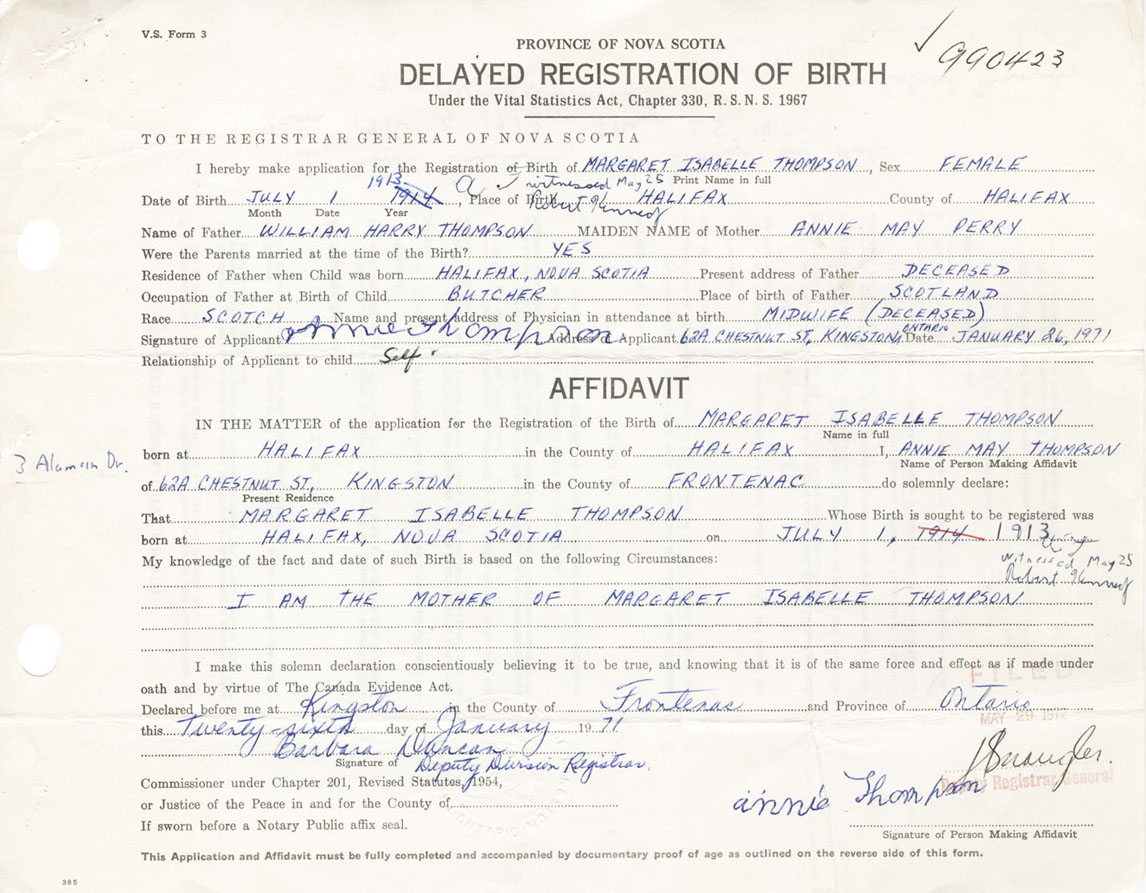 V.S. Form 3
990423
PROVINCE OF NOVA SCOTIA
DELAYED REGISTRATION OF BIRTH
Under the Vital Statistics Act, Chapter 330, R. S. N. S. 1967
TO THE REGISTRAR GENERAL OF NOVA SCOTIA
I hereby make application for the Registration of Birth of MARGARET ISABELLE THOMPSON, Sex FEMALE
1913 witnessed May 25 Print Name in full
Date of Birth JULY 1 1914, Place of Birth HALIFAX County of HALIFAX
Month Date Year Robert Kennedy
Name of Father WILLIAM HARRY THOMPSON MAIDEN NAME of Mother ANNIE MAY PERRY
Were the Parents married at the time of the Birth? YES
Residence of Father when Child was born HALIFAX, NOVA SCOTIA Present address of Father DECEASED
Occupation of Father at Birth of Child BUTCHER Place of birth of Father SCOTLAND
Race SCOTCH Name and present Address of Physician in attendance at birth MIDWIFE (DECEASED)
Signature of Applicant Annie Thompson Address of Applicant 62A CHESTNUT ST, KINGSTON, ONTARIO Date JANUARY 26, 1971
Relationship of Applicant to child Self.
AFFIDAVIT
IN THE MATTER of the application for the Registration of the Birth of MARGARET ISABELLE THOMPSON
Name in full
born at HALIFAX in the County of HALIFAX I, ANNIE MAY THOMPSON
3 Alamein Dr.
Name of Person Making Affidavit
of 62A CHESTNUT ST, KINGSTON in the County of FRONTENAC do solemnly declare:
Present Residence
That MARGARET ISABELLE THOMPSON Whose Birth is sought to be registered was
born at HALIFAX, NOVA SCOTIA on JULY 1, 1914 1913
My knowledge of the fact and date of such Birth is based on the following Circumstances:
witnessed May 25
Robert Kennedy
I AM THE MOTHER OF MARGARET ISABELLE THOMPSON
I make this solemn declaration conscientiously believing it to be true, and knowing that it is of the same force and effect as if made under
oath and by virtue of The Canada Evidence Act.
FILED
Declared before me at Kingston in the County of Frontenac and Province of Ontario
this Twenty-sixth day of January 1971
MAY 29 1972
Barbara Duncan
Signature of Deputy Division Registrar.
Commissioner under Chapter 201, Revised Statutes, 1954,
Deputy Registrar General
annie Thompson
or Justice of the Peace in and for the County of
If sworn before a Notary Public affix seal.
Signature of Person Making Affidavit
This Application and Affidavit must be fully completed and accompanied by documentary proof of age as outlined on the reverse side of this form.
385